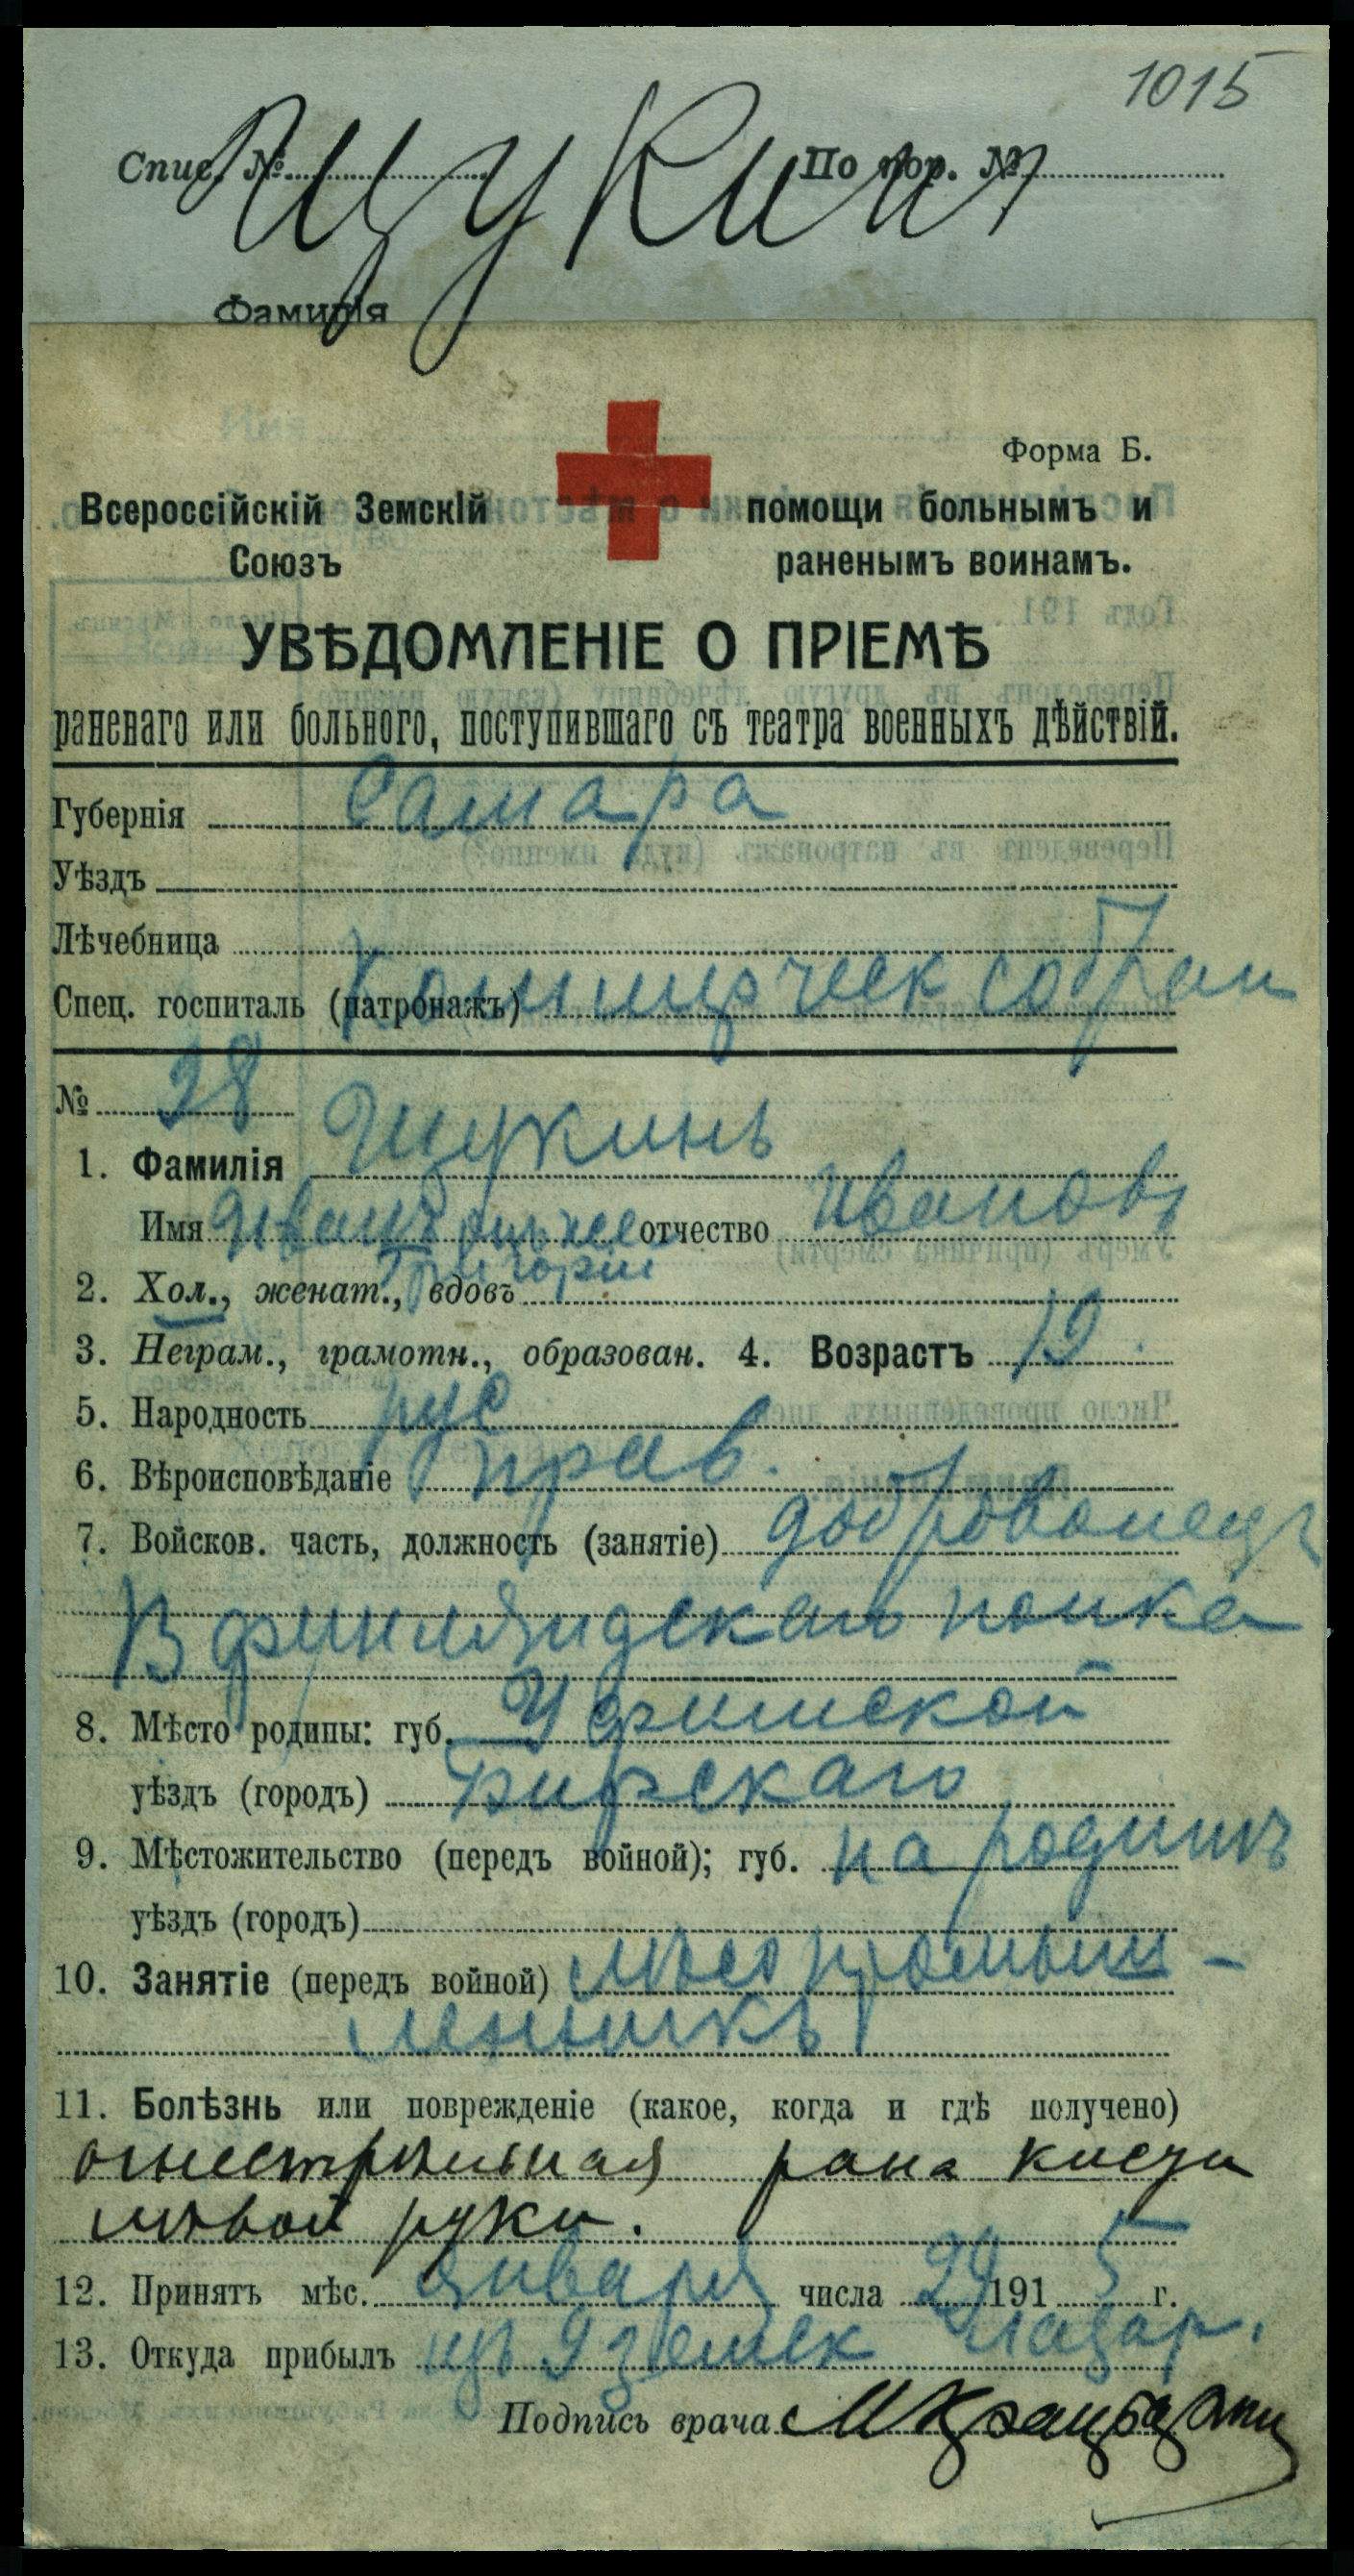 1015
Спис. №
По пор. №
Щукин
Фамилія
Форма Б.
Всероссійскій Земскій
Союзъ
помощи больнымъ и
раненымъ воинамъ.
УВѢДОМЛЕНІЕ О ПРІЕМѢ
раненаго или больного, поступившаго съ театра военныхъ дѣйствій.
Губернія Самара
Уѣздъ
Лѣчебница
Спец. госпиталь (патронажъ) Коммерческ собран
№ 28
1. Фамилія Щукинъ
Имя Иванъ онъ же отчество Иванов
Григорій
2. Хол., женат., вдовъ
3. Неграм., грамотн., образован. 4. Возрастъ 19
5. Народность рус
6. Вѣроисповѣданіе прав.
7. Войсков. часть, должность (занятіе) доброволецъ
финляндскаго полка
8. Мѣсто родины: губ. Уфимской
уѣздъ (городъ) Бирскаго
9. Мѣстожительство (передъ войной); губ. на родинѣ
уѣздъ (городъ)
10. Занятіе (передъ войной) лѣсопромыш-
ленникъ
11. Болѣзнь или поврежденіе (какое, когда и гдѣ получено)
огнестрѣльная рана кисти
лѣвой руки.
12. Принятъ мѣс. января числа 29 1915 г.
13. Откуда прибылъ изъ земск лазар.
Подпись врача